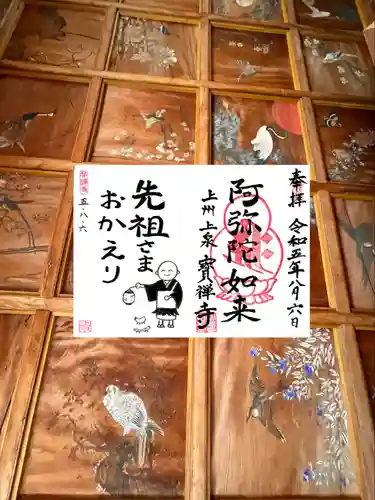 奉拝 令和五年八月六日
阿弥陀如来
上州 上泉 寳禅寺
先祖さま
おかえり
五・八・六